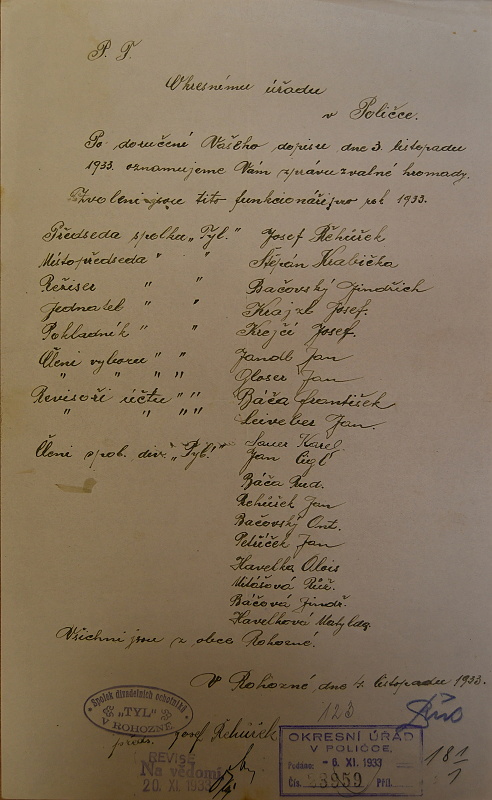 P. T.
Okresnímu úřadu
v Poličce.
Po doručení Vašeho dopisu dne 3. listopadu
1933. oznamujeme Vám zprávu z valné hromady.
Zvoleni jsou tito funkcionáři pro rok 1933.
Předseda spolku „Tyl.“ Josef Řehůřek
Místopředseda " " Štěpán Krabička
Režiser " " Bačovský Jindřich
Jednatel " " Krajzl Josef.
Pokladník " " Krejčí Josef.
Členi výboru " " Jandl Jan
" " " " Gloser Jan
Revisoři účtu " " Báča František
" " " " Jan.
Sauer Karel
Členi spol. div. „Tyl.“ Jan Cígl
Báča Rud.
Řehůřek Jan
Bačovský Ant.
Petříček Jan
Havelka Alois
Růž.
Báčová Jindř.
Havelková Matylda.
Všichni jsou z obce Rohozné.
V Rohozné dne 4. listopadu 1933.
123
Spolek divadelních ochotníků
„TYL“
V ROHOZNÉ
předs. Josef Řehůřek
REVISE
Na vědomí
20. XI. 1933
OKRESNÍ ÚŘAD
V POLIČCE.
Podáno: - 6. XI. 1933
Čís. 28959 Příl.
18/1
1